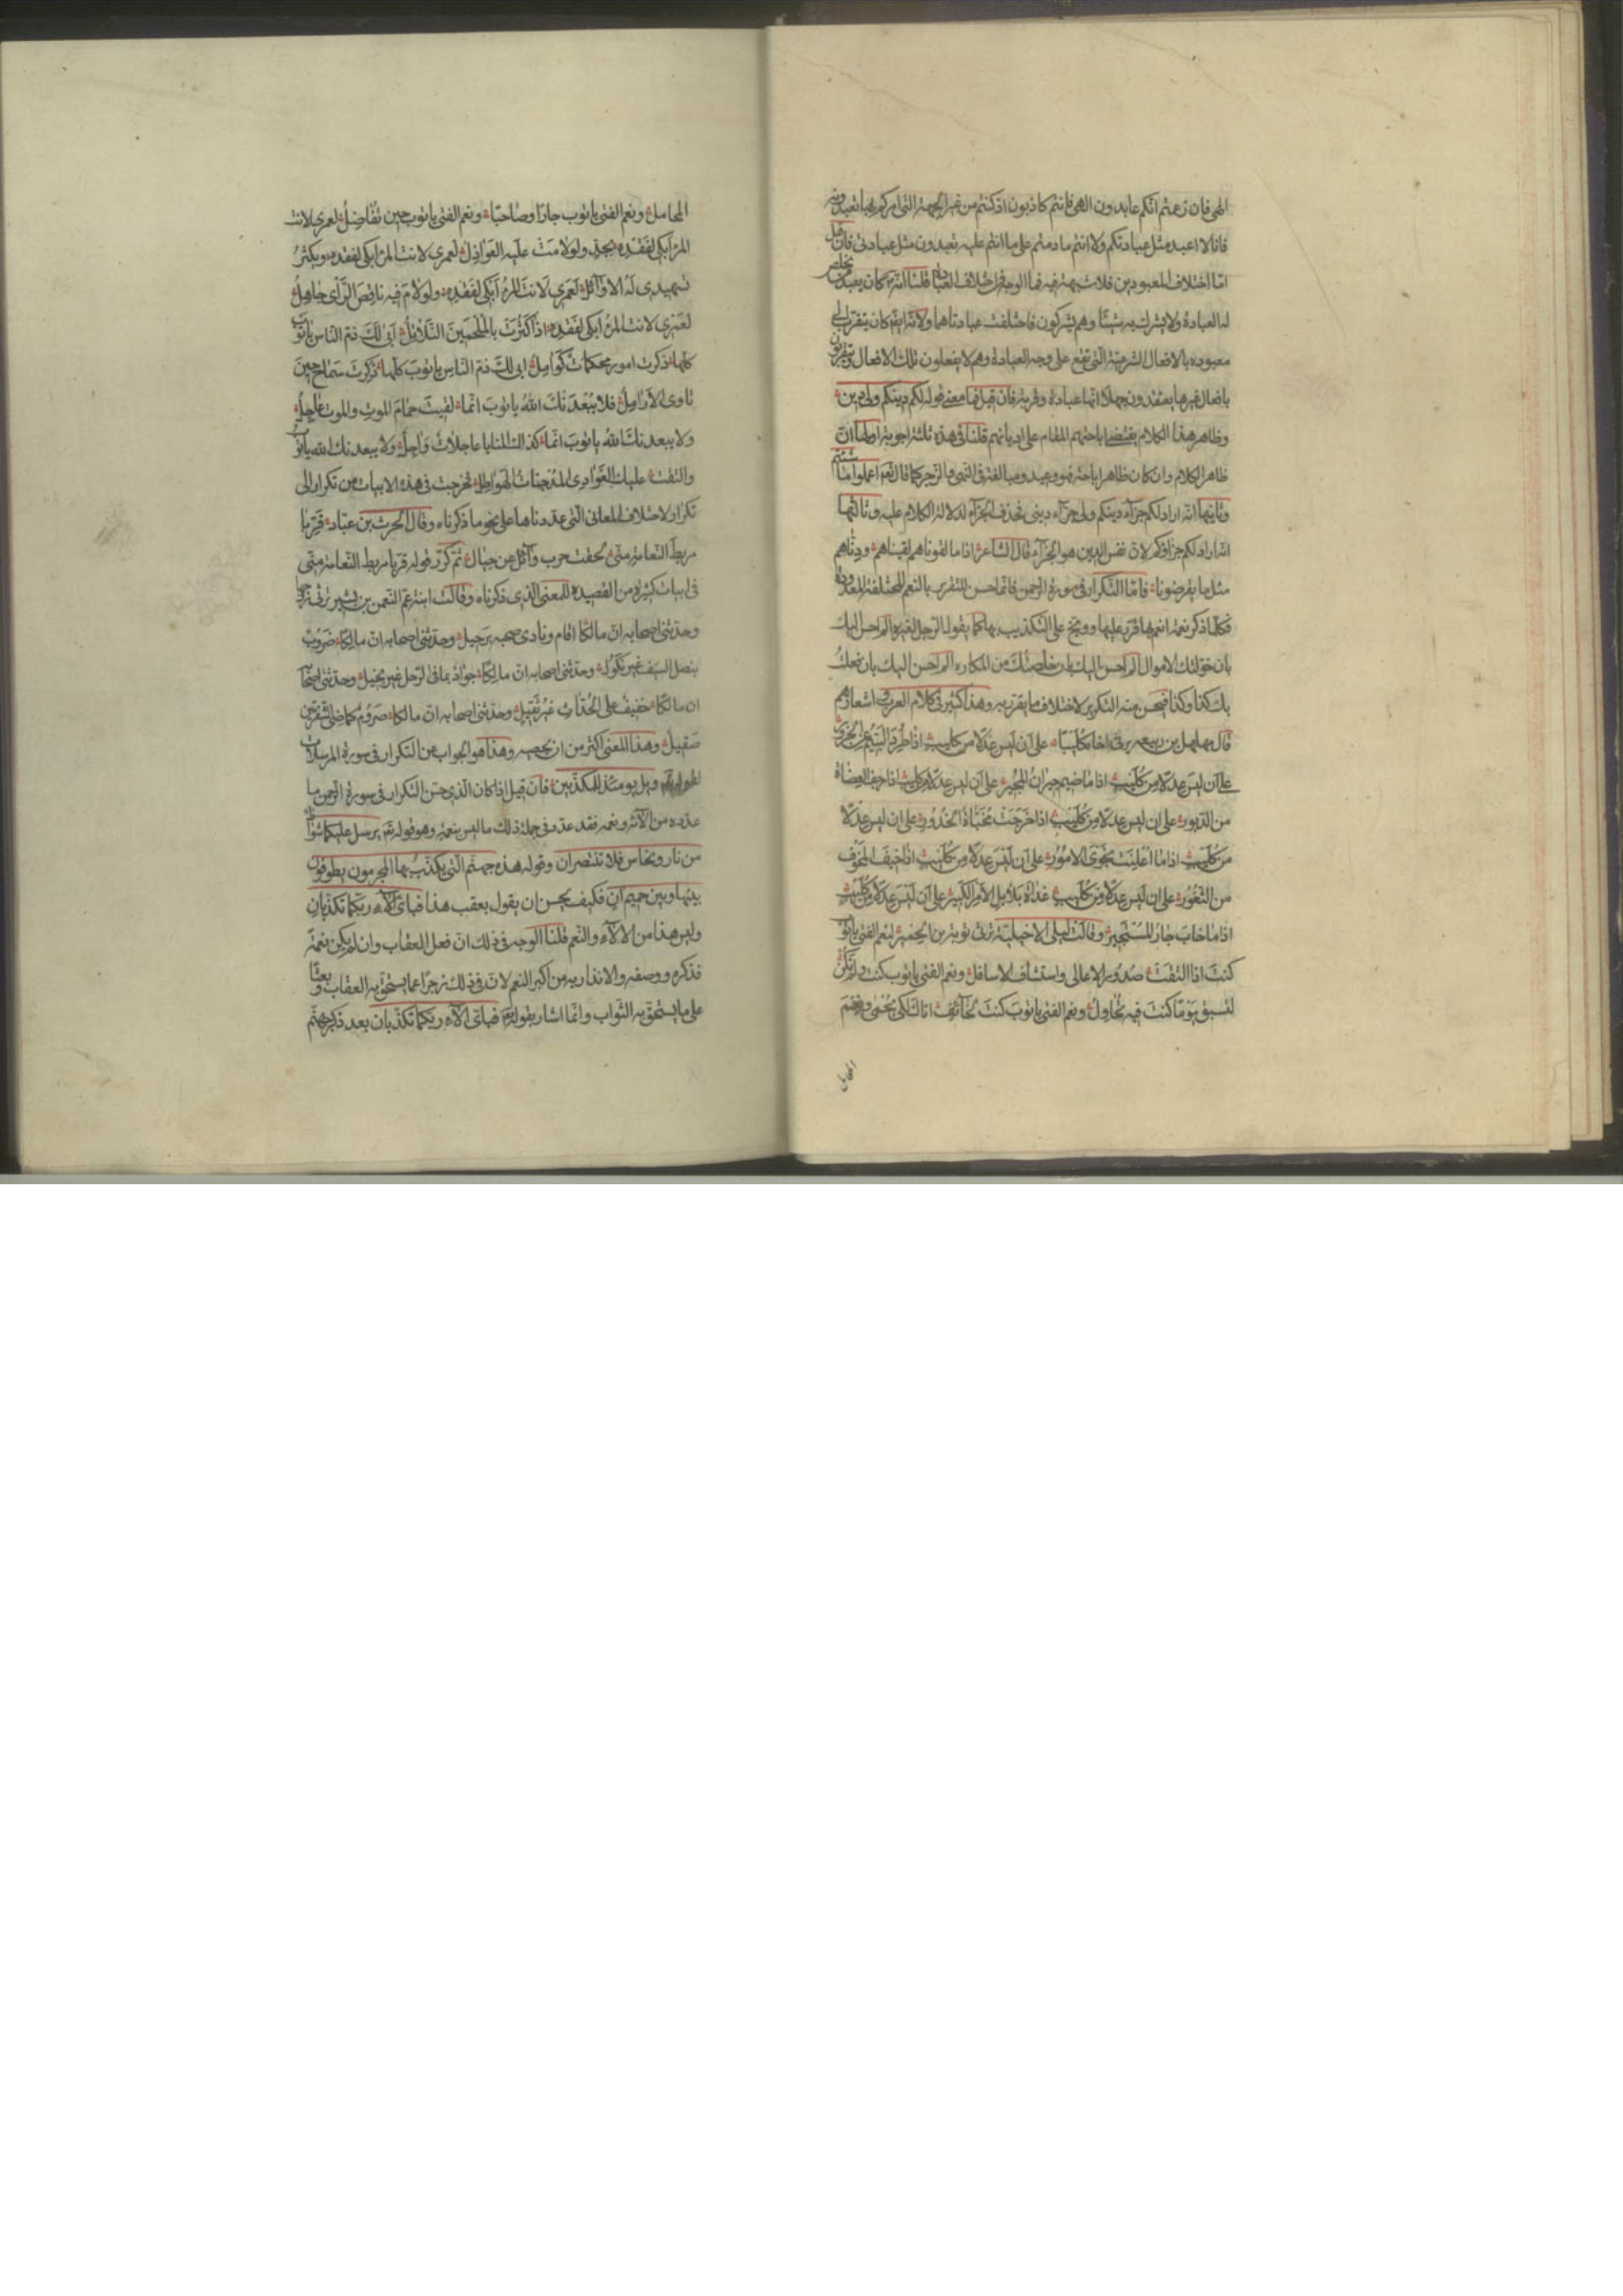 الهى فان زعمتم انكم عابدون الهى فانتم كاذبون اذ كنتم من غير الجهة التى امركم بها تعبدونه
فانا لا اعبد مثل عبادتكم ولا انتم ما دمتم على ما انتم عليه تعبدون مثل عبادتى فان قيل
اما اختلاف المعبودين فلا شبهة فيه فما الوجه فى اختلاف العبادة قلنا انه كان يعبد من يخلص
له العبادة ولا يشرك به شيئا وهم يشركون فاختلفت عبادتاهما ولانه ايضا كان يتقرب الى
معبوده بالافعال الشرعية التى تقع على وجه العبادة وهم لا يفعلون تلك الافعال ويتقربون
بافعال غيرها يعتقدون جهلا انها عبادة وقربة فان قيل فما معنى قوله لكم دينكم ولى دين
وظاهر هذا الكلام يقتضى اباحتهم المقام على اديانهم قلنا فى هذه ثلثة اجوبة اولها ان
ظاهر الكلام وان كان ظاهره اباحة فهو وعيد ومبالغة فى النهى والزجر كما قال تعم اعملوا ما شئتم
وثانيها انه اراد لكم جزآء دينكم ولى جزآء دينى فحذف الجزآء لدلالة الكلام عليه وثالثها
انه اراد لكم جزاؤكم لان نفس الدين هو الجزآء قال الشاعر اذا ما لقونا هم لقيناهم ودناهم
مثل ما يقرضونا فاما التكرار فى سورة الرحمن فانما حسن للتقرير بالنعم المختلفة المعدودة
فكلما ذكر نعمة انعم بها قرر عليها ووبخ على التكذيب بها كما يقول الرجل لغيره الم احسن اليك
بان خولتك الاموال الم احسن اليك بان خلصتك من المكاره الم احسن اليك بان فعلت
بك كذا وكذا فيحسن منه التكرير لاختلاف ما يقرر به وهذا كثير فى كلام العرب واشعارهم
قال مهلهل بن ربيعه يرثى اخاه كليبا على ان ليس عدلا من كليب اذا طرد اليتيم عن الجزور
على ان ليس عدلا من كليب اذا ما ضيم جيران المجير على ان ليس عدلا من كليب اذا رجف العضاة
من الدبور على ان ليس عدلا من كليب اذا خرجت مخبأة الخدور على ان ليس عدلا
من كليب اذا ما اعلنت نجوى الامور على ان ليس عدلا من كليب اذا خيف المخوف
من الثغور على ان ليس عدلا من كليب غداة بلابل الامر الكبير على ان ليس عدلا من كليب
اذا ما خاب جار المستجير وقالت ليلى الاخيلية ترثى توبة بن الحمير لنعم الفتى يا توب
كنت اذا التقت صدور الاعالى واستشاف الاسافل ونعم الفتى يا توب كنت ولم تكن
لتسبق يوما كنت فيه تحاول ونعم الفتى يا توب كنت لخآئف اتاك لكى يحمى ونعم
المحامل
المحامل ونعم الفتى يا توب جارا وصاحبا ونعم الفتى يا توب حين تفاضل لعمرى لانت
المرء ابكى لفقده بجد ولو لامت عليه العواذل لعمرى لانت المرء ابكى لفقده ويكثر
تسهيدى له لا اوآئل لعمرى لانت المرء ابكى لفقده ولو لام فيه ناقص الرأى جاهل
لعمرى لانت المرء ابكى لفقده اذا كثرت بالملحمين التلاتل ابى لك ذم الناس يا توب
كلما ذكرت امور محكمات كوامل ابى لك ذم الناس يا توب كلما ذكرت سماح حين
تاوى الارامل فلا يبعدنك الله يا توب انما لقيت حمام الموت والموت عاجل
ولا يبعدنك الله يا توب انما كذاك المنايا عاجلات وآجل ولا يبعدنك الله يا توب
والتقت عليك الغوادى المدجنات الهواطل فخرجت فى هذه الابيات من تكرار الى
تكرار لاختلاف المعانى التى عددناها على نحو ما ذكرناه وقال الحرث بن عباد قربا
مربط النعامة منى لقحت حرب وآئل عن حيال ثم كرر قوله قربا مربط النعامة منى
فى ابيات كثيرة من القصيده للمعنى الذى ذكرناه وقالت ابنة عم النعمن بن بشير ترثى زوجها
وحدثنى اصحابه ان مالكا اقام ونادى صحبه برحيل وحدثنى اصحابه ان مالكا ضروب
بنصل السيف غير نكول وحدثنى اصحابه ان مالكا جواد بما فى الرحل غير بخيل وحدثنى اصحابه
ان مالكا خفيف على الحداث غير ثقيل وحدثنى اصحابه ان مالكا صروم كماضى الشفرتين
صقيل وهذا المعنى اكثر من ان نحصيه وهذا هو الجواب من التكرار فى سورة المرسلات
لقوله ويل يومئذ للمكذبين فان قيل اذا كان الذى حسن التكرار فى سورة الرحمن ما
عدده من آلآئه ونعمه فقد عدد فى جملة ذلك ما ليس بنعمة وهو قوله تعم يرسل عليكما شواظ
من نار ونحاس فلا تنتصران وقوله هذه جهنم التى يكذب بها المجرمون يطوفون
بينها وبين حميم آن فكيف يحسن ان يقول بعقب هذا فباى آلآء ربكما تكذبان
وليس هذا من الآلآء والنعم قلنا الوجه فى ذلك ان فعل العقاب وان لم يكن نعمة
فذكره ووصفه والانذار به من اكبر النعم لان فى ذلك زجرا عما يستحق به العقاب وبعثا
على ما يستحق به الثواب وانما اشار بقوله تعم فباى آلآء ربكما تكذبان بعد ذكر جهنم